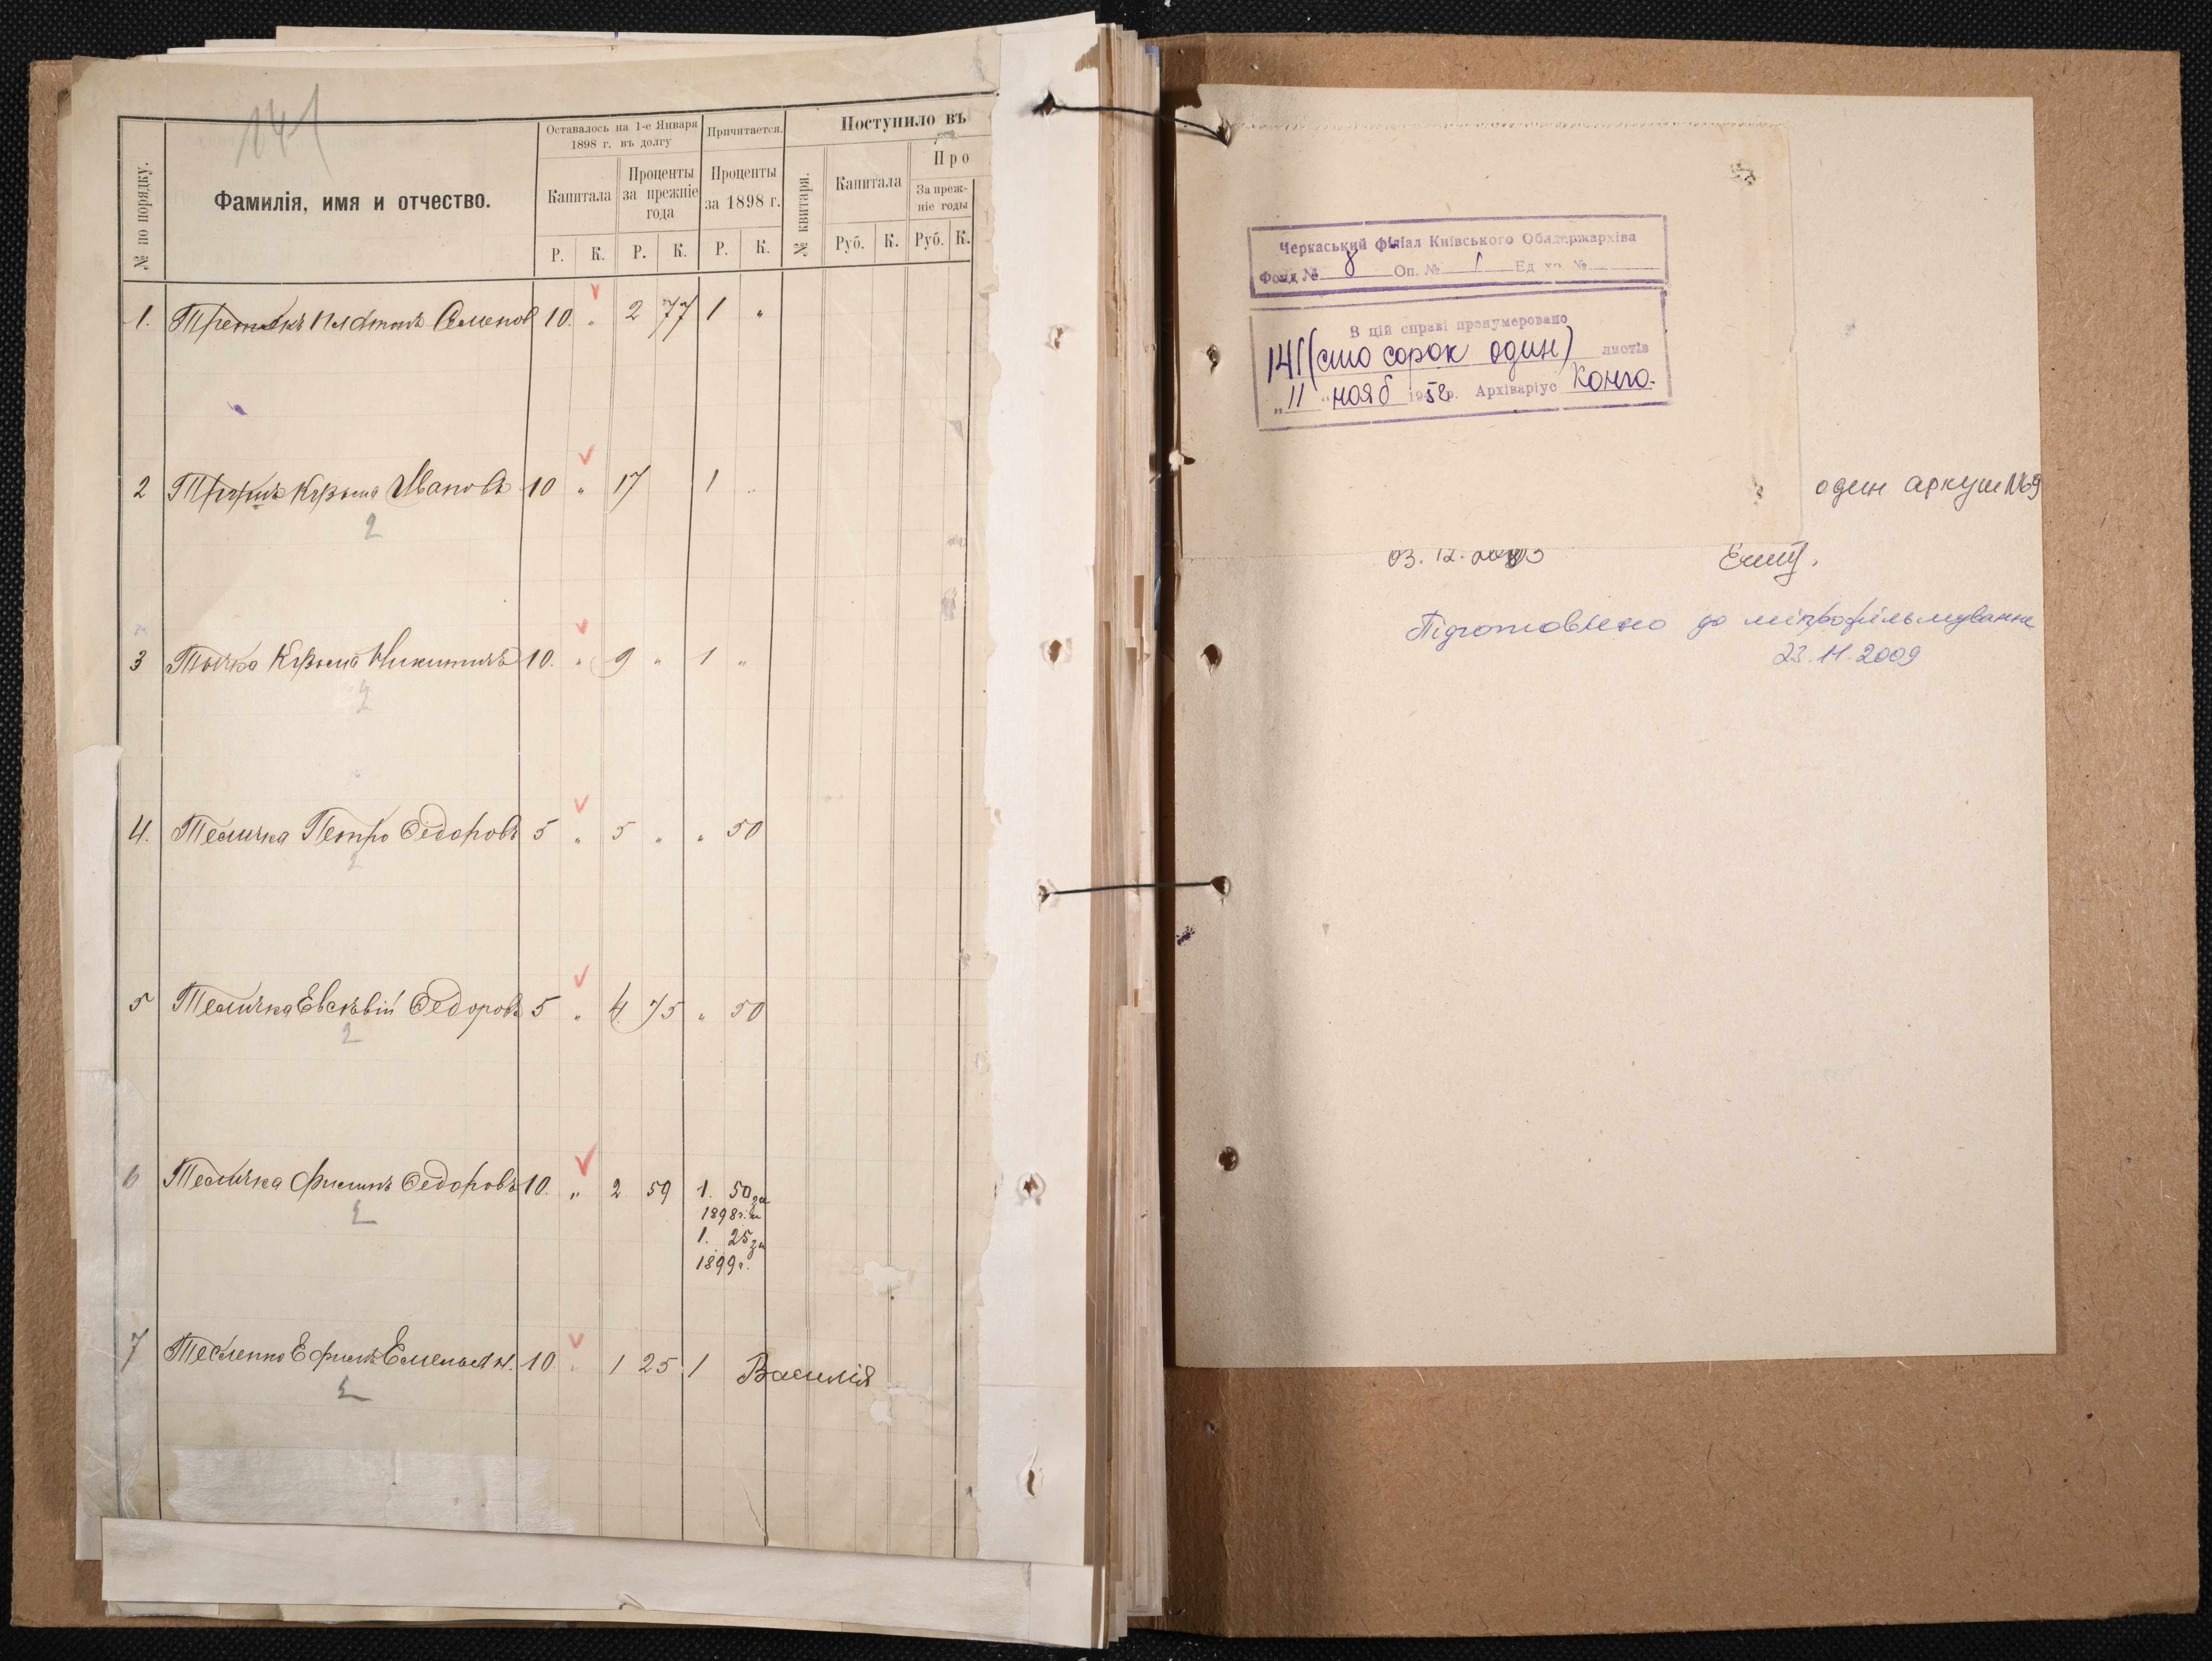 141
№ по порядку.
Фамилія, имя и отчество.
Оставалось на 1-е Января
1898 г. въ долгу
Причитается.
Поступило въ
Капитала
Проценты
за прежніе
года
Проценты
за 1898 г.
№ квитаря.
Капитала
Про
За преж-
ніе годы
Р. К. Р. К. Р. К. Руб. К. Руб. К.
1. Третякъ Платонъ Семенов 10. „ 2 77 1 „
2 Кузьма Ивановъ 10 „ 17 1 „
2
3 Кузьма Никитинъ 10. „ 9 „ 1 „
2
4. Теличка Петро Федоровъ 5 „ 5 „ „ 50
2
5 Теличка Евсевій Федоровъ 5 „ 4 75 „ 50
2
6 Теличка Филипъ Федоровъ 10. „ 2 59 1. 50 за
1898 г. и
1. 25 за
1899 г.
2
7 Тесленко Ефимъ Емельян. 10 „ 1 25 1 Василія
2
Черкаський філіал Київського Облдержархіва
Фонд № 8 Оп. № 1 Ед. хр. №
В цій справі пронумеровано
141 (сто сорок один) листів
„11" нояб 1958 р. Архіваріус
один аркуш №69
03.12.2003
Підготовлено до мікрофільмування
23.11.2009